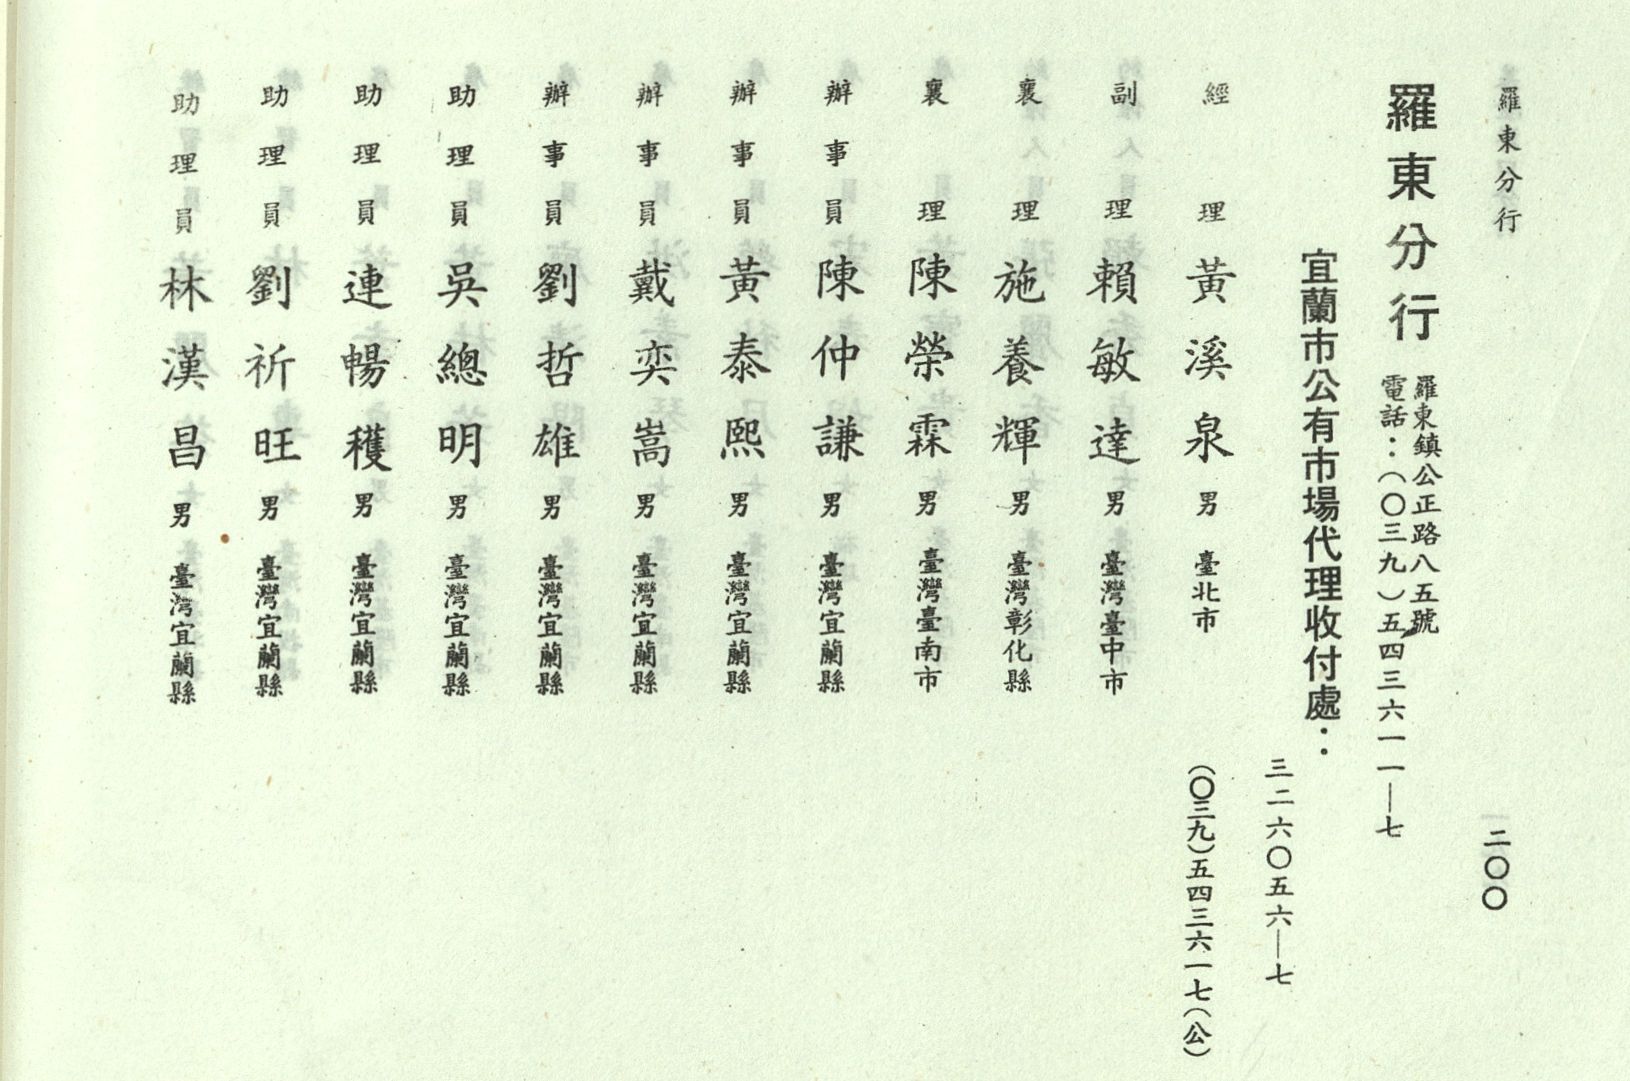 羅東分行
二〇〇
羅東分行
羅東鎮公正路八五號
電話：(〇三九)五四三六一一—七
宜蘭市公有市場代理收付處：
三二六〇五六—七
經理 黃溪泉 男 臺北市 (〇三九)五四三六一七(公)
副理 賴敏達 男 臺灣臺中市
襄理 施養輝 男 臺灣彰化縣
襄理 陳榮霖 男 臺灣臺南市
辦事員 陳仲謙 男 臺灣宜蘭縣
辦事員 黃泰熙 男 臺灣宜蘭縣
辦事員 戴奕嵩 男 臺灣宜蘭縣
辦事員 劉哲雄 男 臺灣宜蘭縣
助理員 吳總明 男 臺灣宜蘭縣
助理員 連暢穫 男 臺灣宜蘭縣
助理員 劉祈旺 男 臺灣宜蘭縣
助理員 林漢昌 男 臺灣宜蘭縣